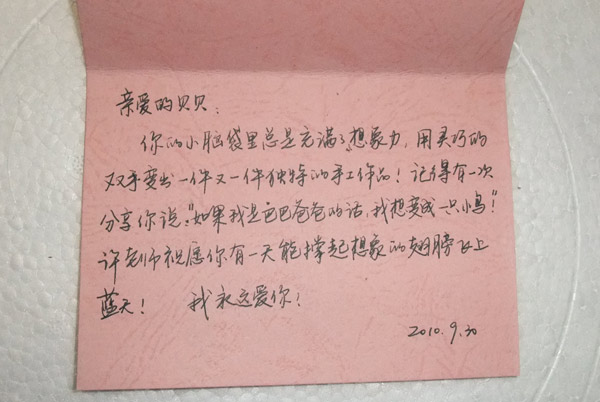 亲爱的贝贝：
你的小脑袋里总是充满了想象力，用灵巧的
双手变出一件又一件独特的手工作品！记得有一次
分享你说：“如果我是巴巴爸爸的话，我想变成一只小鸟！”
许老师祝愿你有一天能撑起想象的翅膀飞上
蓝天！ 我永远爱你！
2010.9.30